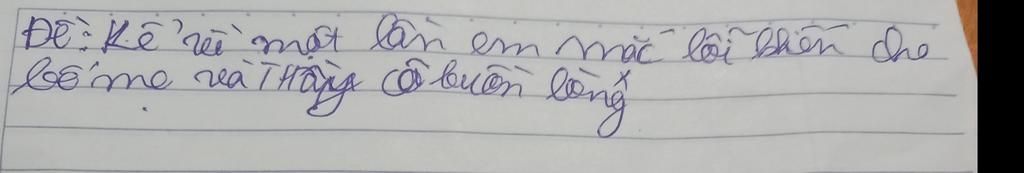 Đề: Kể về một lần em mắc lỗi khiến cho
bố mẹ và Thầy cô buồn lòng